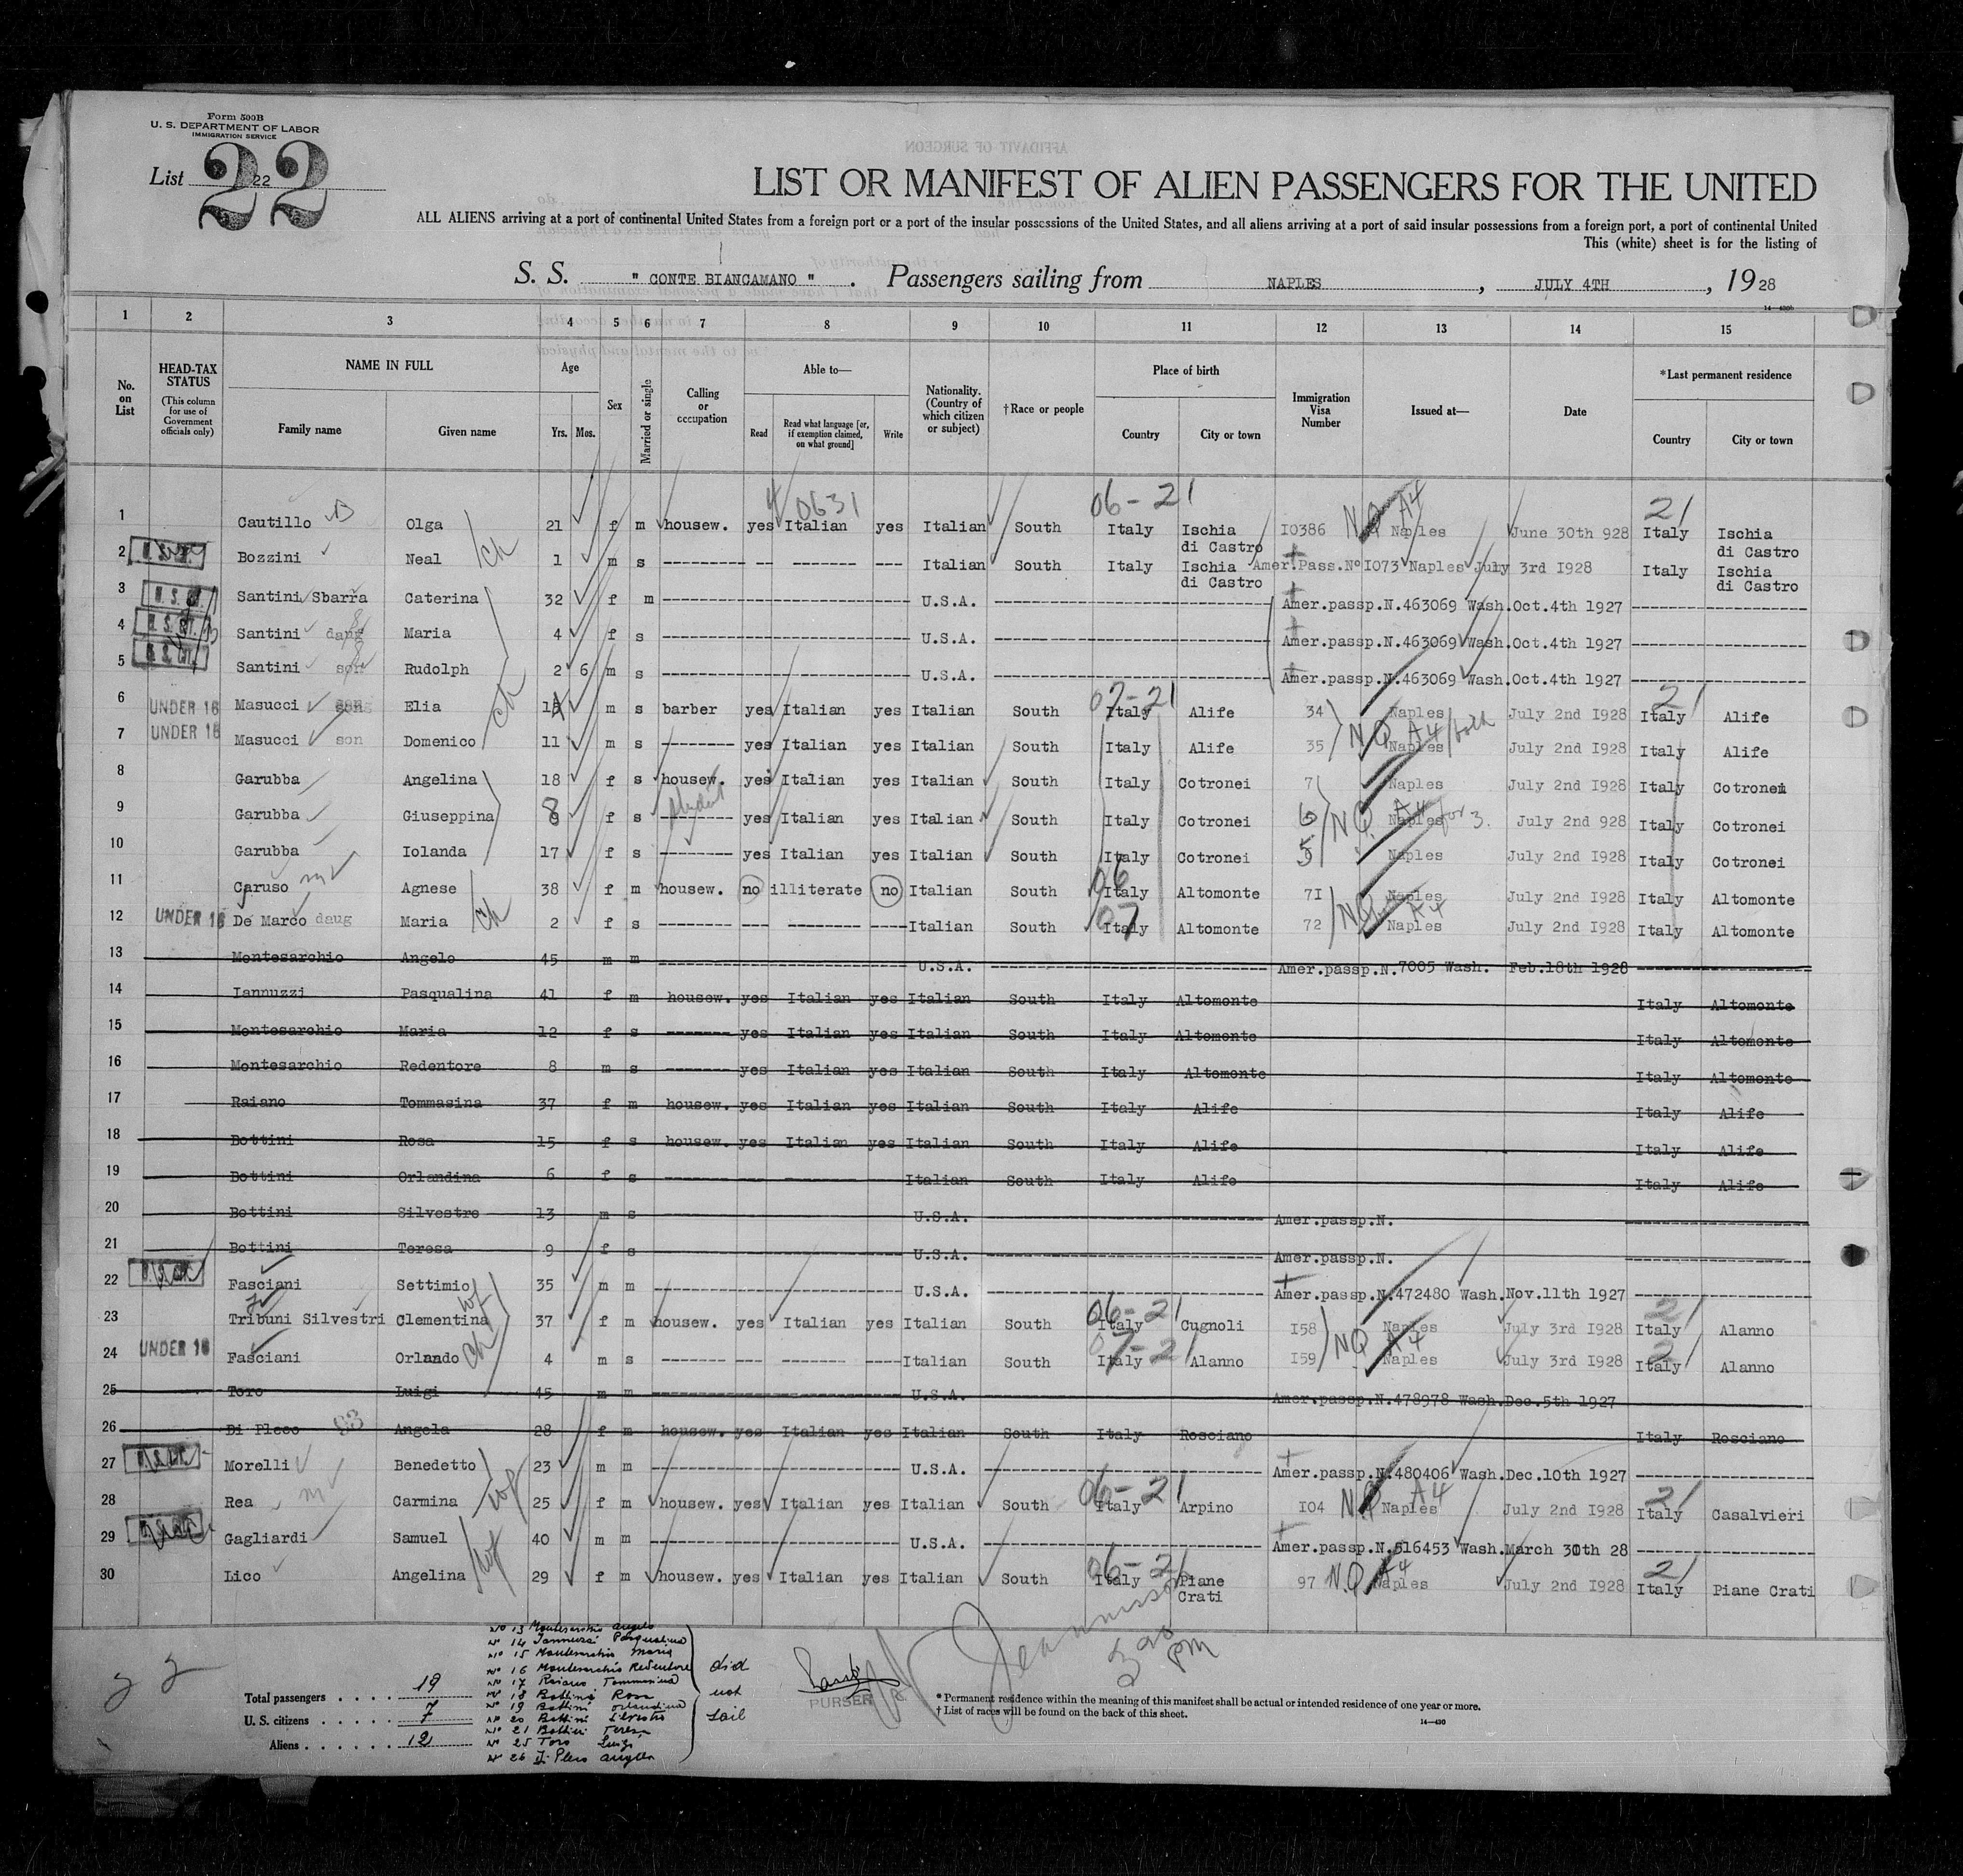 Form 500B
U. S. DEPARTMENT OF LABOR
IMMIGRATION SERVICE
List 22
22
AFFIDAVIT OF SURGEON
LIST OR MANIFEST OF ALIEN PASSENGERS FOR THE UNITED
ALL ALIENS arriving at a port of continental United States from a foreign port or a port of the insular possessions of the United States, and all aliens arriving at a port of said insular possessions from a foreign port, a port of continental United
This (white) sheet is for the listing of
S. S. " CONTE BIANCAMANO " . Passengers sailing from NAPLES , JULY 4TH , 1928
14—430b
1 2 3 4 5 6 7 8 9 10 11 12 13 14 15
No. on List
HEAD-TAX STATUS (This column for use of Government officials only)
NAME IN FULL Family name Given name
Age Yrs. Mos.
Sex
Married or single
Calling or occupation
Able to— Read Read what language [or, if exemption claimed, on what ground] Write
Nationality. (Country of which citizen or subject)
†Race or people
Place of birth Country City or town
Immigration Visa Number
Issued at—
Date
*Last permanent residence Country City or town
4 0631 06-21 21
1 Cautillo Olga 21 f m housew. yes Italian yes Italian South Italy Ischia di Castro I0386 NQ A4 Naples June 30th 928 Italy Ischia di Castro
2 Bozzini Neal ch 1 m s Italian South Italy Ischia di Castro Amer.Pass.Nº I073 Naples July 3rd I928 Italy Ischia di Castro
3 U.S. Cit. Santini Sbarra Caterina 32 f m U.S.A. Amer.passp.N.463069 Wash.Oct.4th 1927
4 U.S. Cit. Santini daug Maria 4 f s U.S.A. Amer.passp.N.463069 Wash.Oct.4th 1927
5 U.S. Cit. Santini son Rudolph ch 2 6 m s U.S.A. Amer.passp.N.463069 Wash.Oct.4th 1927
6 UNDER 16 Masucci Elia m s barber yes Italian yes Italian South 07-21 Italy Alife 34 Naples July 2nd I928 21 Italy Alife
7 UNDER 16 Masucci son Domenico 11 m s yes Italian yes Italian South Italy Alife 35 NQ A4 both Naples July 2nd I928 Italy Alife
8 Garubba Angelina 18 f s housew. yes Italian yes Italian South Italy Cotronei 7 Naples July 2nd I928 Italy Cotronei
9 Garubba Giuseppina 8 f s student yes Italian yes Italian South Italy Cotronei 6 NQ A4 for 3. Naples July 2nd 928 Italy Cotronei
10 Garubba Iolanda 17 f s yes Italian yes Italian South Italy Cotronei 5 Naples July 2nd I928 Italy Cotronei
11 Caruso m Agnese 38 f m housew. no illiterate no Italian South 06 Italy Altomonte 7I Naples July 2nd I928 Italy Altomonte
12 UNDER 16 De Marco daug Maria ch 2 f s Italian South 07 Italy Altomonte 72 NQ A4 Naples July 2nd I928 Italy Altomonte
13 Montesarchio Angelo 45 m m U.S.A. Amer.passp.N.7005 Wash. Feb.18th 1928
14 Iannuzzi Pasqualina 41 f m housew. yes Italian yes Italian South Italy Altomonte Italy Altomonte
15 Montesarchio Maria 12 f s yes Italian yes Italian South Italy Altomonte Italy Altomonte
16 Montesarchio Redentore 8 m s yes Italian yes Italian South Italy Altomonte Italy Altomonte
17 Raiano Tommasina 37 f m housew. yes Italian yes Italian South Italy Alife Italy Alife
18 Bottini Rosa 15 f s housew. yes Italian yes Italian South Italy Alife Italy Alife
19 Bottini Orlandina 6 f s Italian South Italy Alife Italy Alife
20 Bottini Silvestro 13 m s U.S.A. Amer.passp.N.
21 Bottini Teresa 9 f s U.S.A. Amer.passp.N.
22 Fasciani Settimio 35 m m U.S.A. Amer.passp.N.472480 Wash.Nov.11th 1927
23 Tribuni Silvestri Clementina wf 37 f m housew. yes Italian yes Italian South 06-21 Italy Cugnoli I58 Naples July 3rd I928 21 Italy Alanno
24 UNDER 16 Fasciani Orlando ch 4 m s Italian South 07-21 Italy Alanno I59 NQ A4 Naples July 3rd I928 2 Italy Alanno
25 Toro Luigi 45 m m U.S.A. Amer.passp.N.478978 Wash.Dec.5th 1927
26 Di Pleco 93 Angela 28 f m housew. yes Italian yes Italian South Italy Rosciano Italy Rosciano
27 Morelli Benedetto 23 m m U.S.A. Amer.passp.N.480406 Wash.Dec.10th 1927
28 Rea m Carmina wf 25 f m housew. yes Italian yes Italian South 06-21 Italy Arpino I04 NQ A4 Naples July 2nd I928 21 Italy Casalvieri
29 Gagliardi Samuel 40 m m U.S.A. Amer.passp.N.516453 Wash.March 30th 28
30 Lico Angelina wf 29 f m housew. yes Italian yes Italian South 06-21 Italy Piane Crati 97 NQ A4 Naples July 2nd I928 21 Italy Piane Crati
Nº 13 Montesarchio Angelo
Nº 14 Iannuzzi Pasqualina
Nº 15 Montesarchio Maria
Nº 16 Montesarchio Redentore
Nº 17 Raiano Tommasina
Nº 18 Bottini Rosa
Nº 19 Bottini Orlandina
Nº 20 Bottini Silvestro
Nº 21 Bottini Teresa
Nº 25 Toro Luigi
Nº 26 Di Pleco Angela
did not sail
Total passengers . . . . 19
U. S. citizens . . . . . 7
Aliens . . . . . . 12
PURSER
PM
* Permanent residence within the meaning of this manifest shall be actual or intended residence of one year or more.
† List of races will be found on the back of this sheet.
14—430